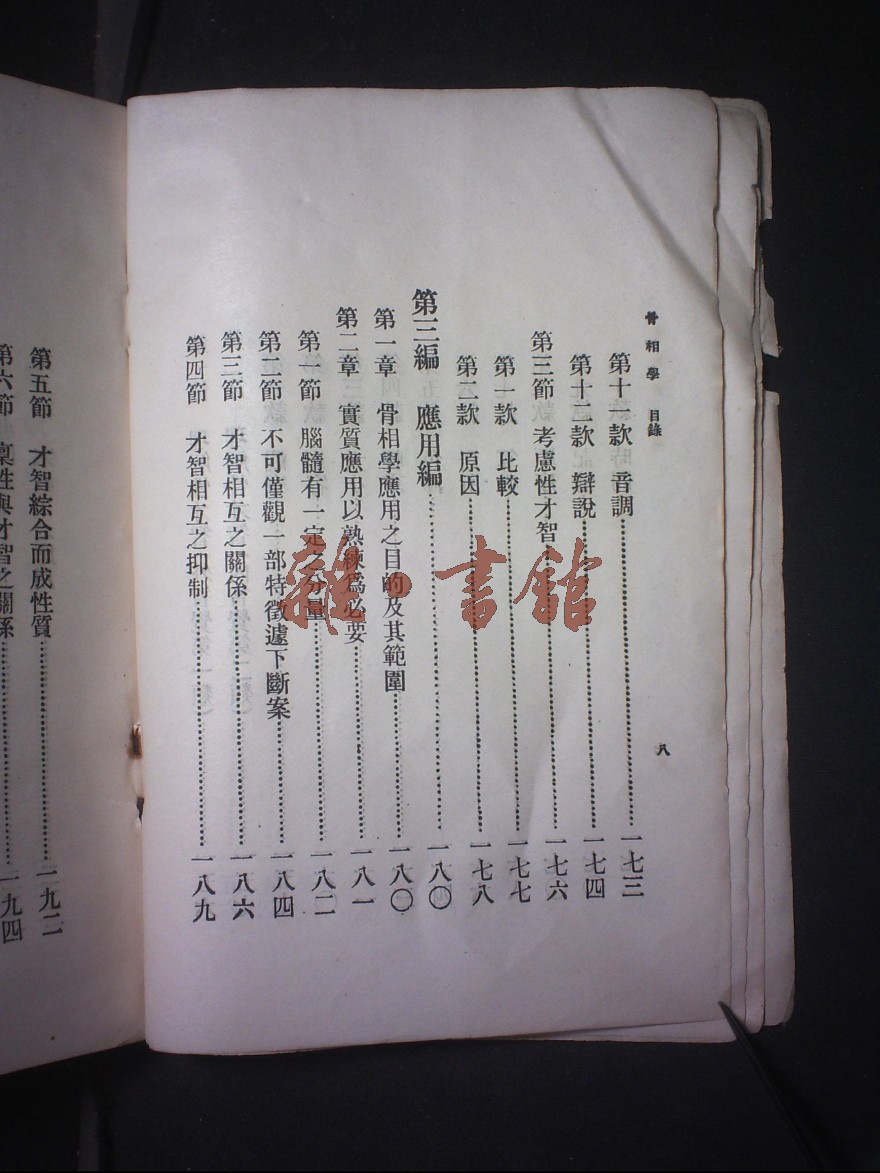 骨相學 目錄
八
第十一款 音調 一七三
第十二款 辯說 一七四
第三節 考慮性才智 一七六
第一款 比較 一七七
第二款 原因 一七八
第三編 應用編 一八〇
第一章 骨相學應用之目的及其範圍 一八〇
第二章 實質應用以熟練爲必要 一八一
第一節 腦髓有一定之分量 一八二
第二節 不可僅觀一部特徵遽下斷案 一八四
第三節 才智相互之關係 一八六
第四節 才智相互之抑制 一八九
第五節 才智綜合而成性質 一九二
第六節 稟性與才智之關係 一九四
雜·書館